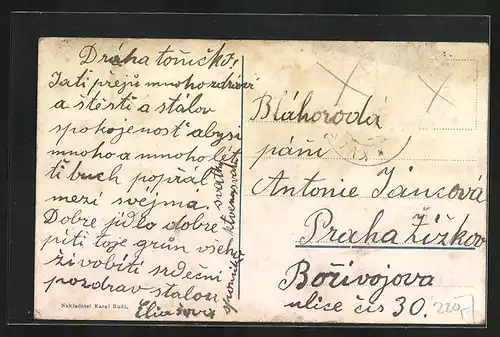 Dráha toničko!
Ja ti přeju mnoho zdraví
a štěstí a stalou
spokojenost abysi
mnoho a mnoho lét
ti buch popřál
mezi svejma.
Dobre jidlo dobre
piti toje grůn všeho
živobiti srdečni
pozdrav stalou
Nakladatel Karel Rudl.
Blahorodá
páni
Antonie Jánsová
Praha Žižkov
Bořivojova
ulice čis 30.
220,-